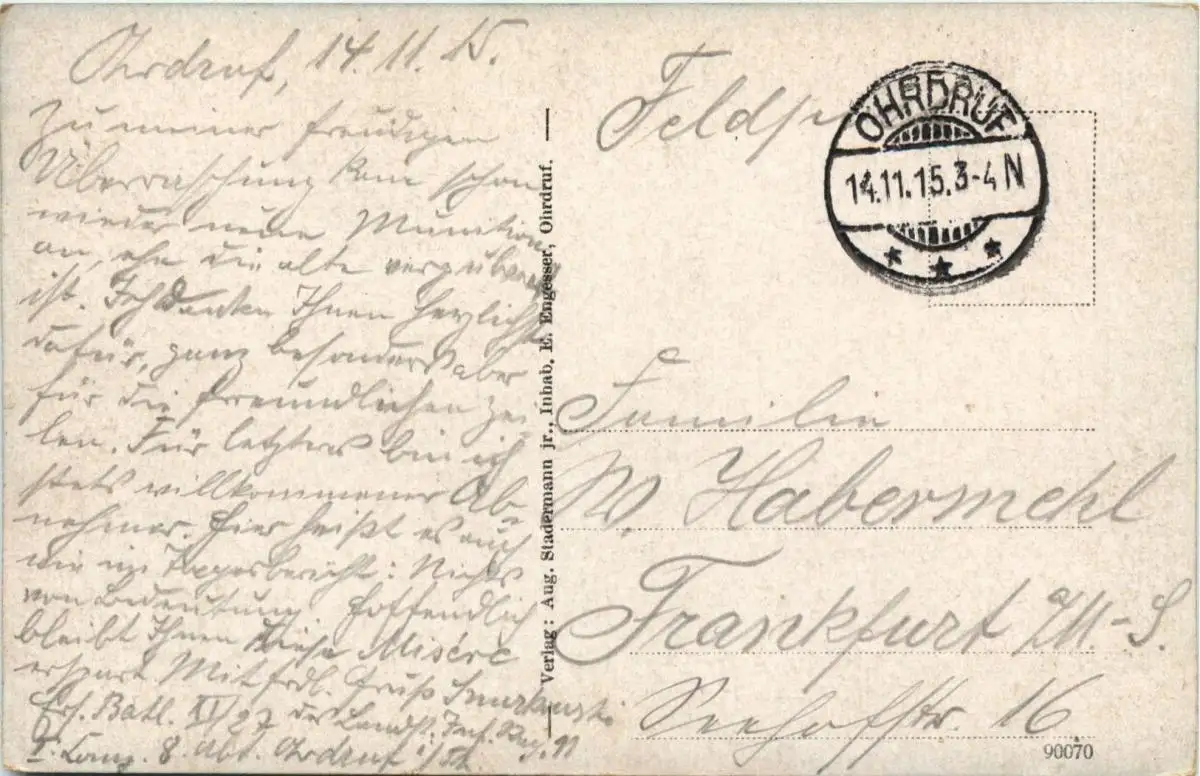 Ohrdruf, 14.11.15.
Zu meiner freudigen
Überraschung kam schon
wieder neue Munition
an, ehe die alte
ist. Ich danke Ihnen herzlichst
dafür, ganz besonders aber
für die freundlichen Zei-
len. Für letztere bin ich
stets willkommener Ab-
nehmer. Hier heißt es auch
wie im Tagesbericht: Nichts
von Bedeutung. Hoffendlich
bleibt Ihnen diese Misère
erspart. Mit frdl. Gruß
Ers. Batl. XI/27 des Landst. Inf. Reg. 11
I. Comp. 8. Abt. Ohrdruf i/Th.
Verlag: Aug. Stadermann jr., Inhab. E. Engesser, Ohrdruf.
OHRDRUF
14.11.15.3-4 N
Familie
W. Habermehl
Frankfurt a/M-S.
Seehofstr. 16
90070